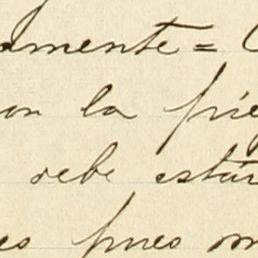 amente = C
on la pie
debe estar
es pues m